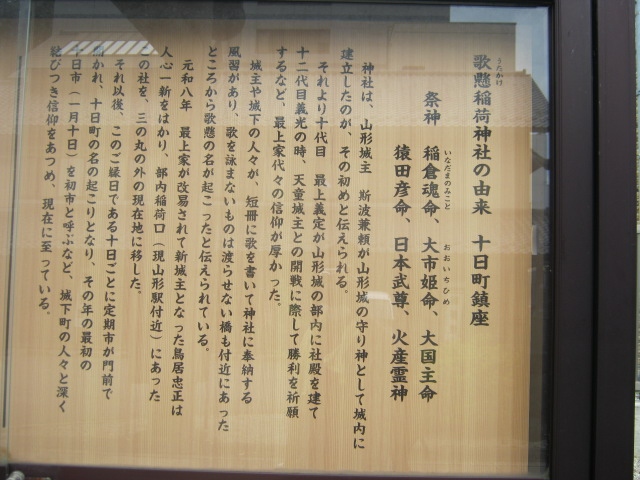 歌懸稲荷神社の由来 十日町鎮座
うたかけ
祭神 稲倉魂命、大市姫命、大国主命
いなだまのみこと おおいちひめ
猿田彦命、日本武尊、火産霊神
神社は、山形城主 斯波兼頼が山形城の守り神として城内に
建立したのが、その初めと伝えられる。
それより十代目 最上義定が山形城の部内に社殿を建て
十二代目義光の時、天童城主との開戦に際して勝利を祈願
するなど、最上家代々の信仰が厚かった。
城主や城下の人々が、短冊に歌を書いて神社に奉納する
風習があり、歌を詠まないものは渡らせない橋も付近にあった
ところから歌懸の名が起こったと伝えられている。
元和八年 最上家が改易されて新城主となった鳥居忠正は
人心一新をはかり、部内稲荷口（現山形駅付近）にあった
この社を、三の丸の外の現在地に移した。
それ以後、このご縁日である十日ごとに定期市が門前で
開かれ、十日町の名の起こりとなり、その年の最初の
十日市（一月十日）を初市と呼ぶなど、城下町の人々と深く
結びつき信仰をあつめ、現在に至っている。